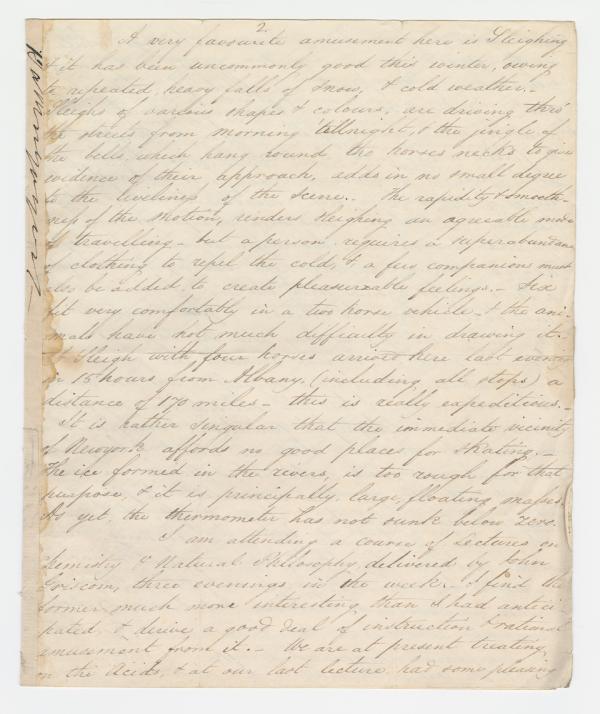 2.
A very favourite amusement here is Sleighing
& it has been uncommonly good this winter, owing
to repeated, heavy falls of snow, & cold weather.-
Sleighs of various shapes & colours, are driving thro'
the streets from morning till night, & the jingle of
the bells, which hang round the horses necks to give
evidence of their approach, adds in no small degree
to the liveliness of the scene.. The rapidity & smooth-
ness of the motion, renders sleighing an agreeable mode
of travelling - but a person requires a superabundance
of clothing to repel the cold, & a few companions must
also be added, to create pleasureable feelings.- Six
sit very comfortably in a two horse vehicle - & the ani-
mals have not much difficulty in drawing it.-
A Sleigh with four horses arrived here last evening
in 15 hours from Albany, (including all stops) a
distance of 170 miles - this is really expeditious.-
It is rather singular that the immediate vicinity
of Newyork affords no good places for skating.-
The ice formed in the rivers, is too rough for that
purpose, & it is principally large, floating masses.
As yet, the thermometer has not sunk below zero.
I am attending a course of Lectures on
Chemistry & Natural Philosophy, delivered by John
Griscom, three evenings in the week.- I find the
former much more interesting than I had antici-
pated, & derive a good deal of instruction & rational
amusement from it.- We are at present treating
on the Acids, & at our last lecture had some pleasing